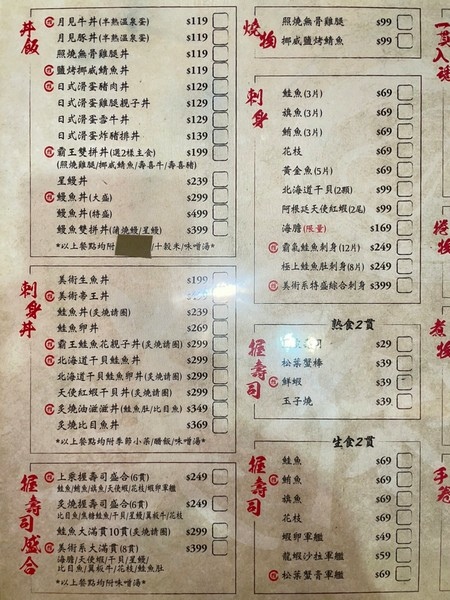 丼飯
月見牛丼(半熟溫泉蛋) $119
月見豚丼(半熟溫泉蛋) $119
照燒無骨雞腿丼 $119
鹽烤挪威鯖魚丼 $119
日式滑蛋豬肉丼 $129
日式滑蛋雞腿親子丼 $129
日式滑蛋雪牛丼 $129
日式滑蛋炸豬排丼 $139
霸王雙拼丼(選2樣主食) $199
(照燒雞腿/挪威鯖魚/壽喜牛/壽喜豬)
星鰻丼 $239
鰻魚丼(大盛) $299
鰻魚丼(特盛) $499
鰻魚雙拼丼(蒲燒鰻/星鰻) $399
*以上餐點均附 /十穀米/味噌湯*
刺身丼
美術生魚丼 $199
美術帝王丼
鮭魚丼(炙燒請圈) $239
鮭魚卵丼 $269
霸王鮭魚花親子丼(炙燒請圈) $299
北海道干貝鮭魚丼 $299
北海道干貝鮭魚卵丼(炙燒請圈) $299
天使紅蝦干貝丼(炙燒請圈) $299
炙燒油滋滋丼(鮭魚肚/比目魚) $349
炙燒比目魚丼 $369
*以上餐點均附季節小菜/醋飯/味噌湯*
握壽司盛合
上乘握壽司盛合(6貫) $249
鮭魚/鮪魚/旗魚/天使蝦/花枝/蝦卵軍艦
炙燒握壽司盛合(6貫) $249
比目魚/焦糖鮭魚/干貝/星鰻/翼板牛/花枝
鮭魚大滿貫10貫(炙燒請圈) $299
美術系大滿貫(8貫) $399
海膽/天使蝦/干貝/星鰻/
比目魚/翼板牛/花枝/鮭魚肚
*以上餐點均附味噌湯*
燒物
照燒無骨雞腿 $99
挪威鹽烤鯖魚 $99
刺身
鮭魚(3片) $69
旗魚(3片) $69
鮪魚(3片) $69
花枝 $69
黃金魚(5片) $69
北海道干貝(2顆) $99
阿根廷天使紅蝦(2尾) $99
海膽(限量) $169
霸氣鮭魚刺身(12片) $249
極上鮭魚肚刺身(8片) $249
美術系特盛綜合刺身 $399
握壽司
熟食2貫
$29
松葉蟹棒 $39
鮮蝦 $39
玉子燒 $39
握壽司
生食2貫
鮭魚 $69
鮪魚 $69
旗魚 $69
花枝 $69
蝦卵軍艦 $49
龍蝦沙拉軍艦 $59
松葉蟹膏軍艦 $69
一貫入魂
煮物
手卷